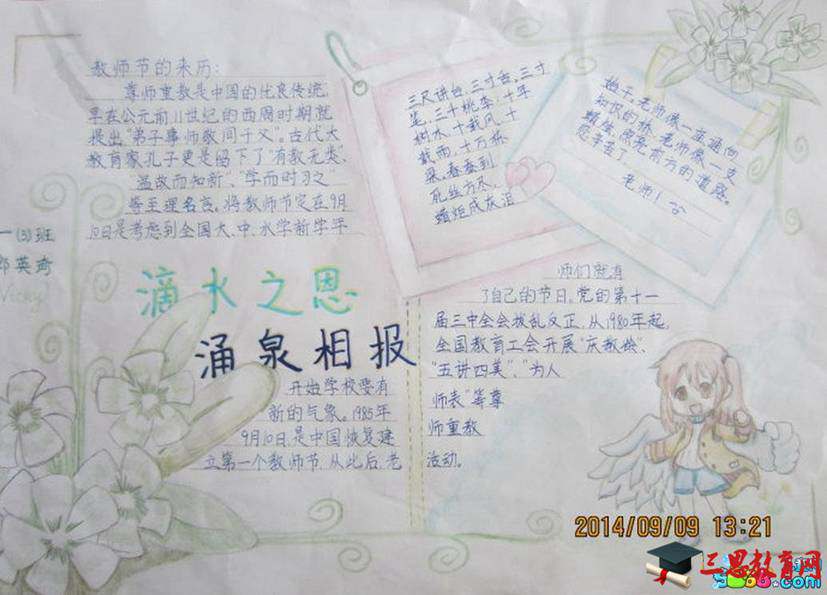 教师节的来历:
尊师重教是中国的优良传统,
早在公元前11世纪的西周时期就
提出"弟子事师敬同于父"。古代大
教育家孔子更是留下了"有教无类"、
"温故而知新"、"学而时习之"
等至理名言。将教师节定在9月
10日是考虑到全国大、中、小学新学年
三尺讲台,三寸舌,三寸
笔,三十桃李,十年
树木,十载风,十
载雨,十万栋
梁,春蚕到
死丝方尽,
蜡炬成灰泪
老师像一座通向
知识的桥,老师像一支
蜡烛,照亮前方的道路。
您辛苦了
老师!
一(3)班
英琦
Vicky
滴水之恩
涌泉相报
开始学校要有
新的气象。1985年
9月10日是中国恢复建
立第一个教师节,从此后,老
师们就有
了自己的节日。党的第十一
届三中全会拨乱反正,从1980年起,
全国教育工会开展"庆教
"五讲四美","为人
师表"等尊
师重教
活动。
2014/09/09 13:21
三思教育网